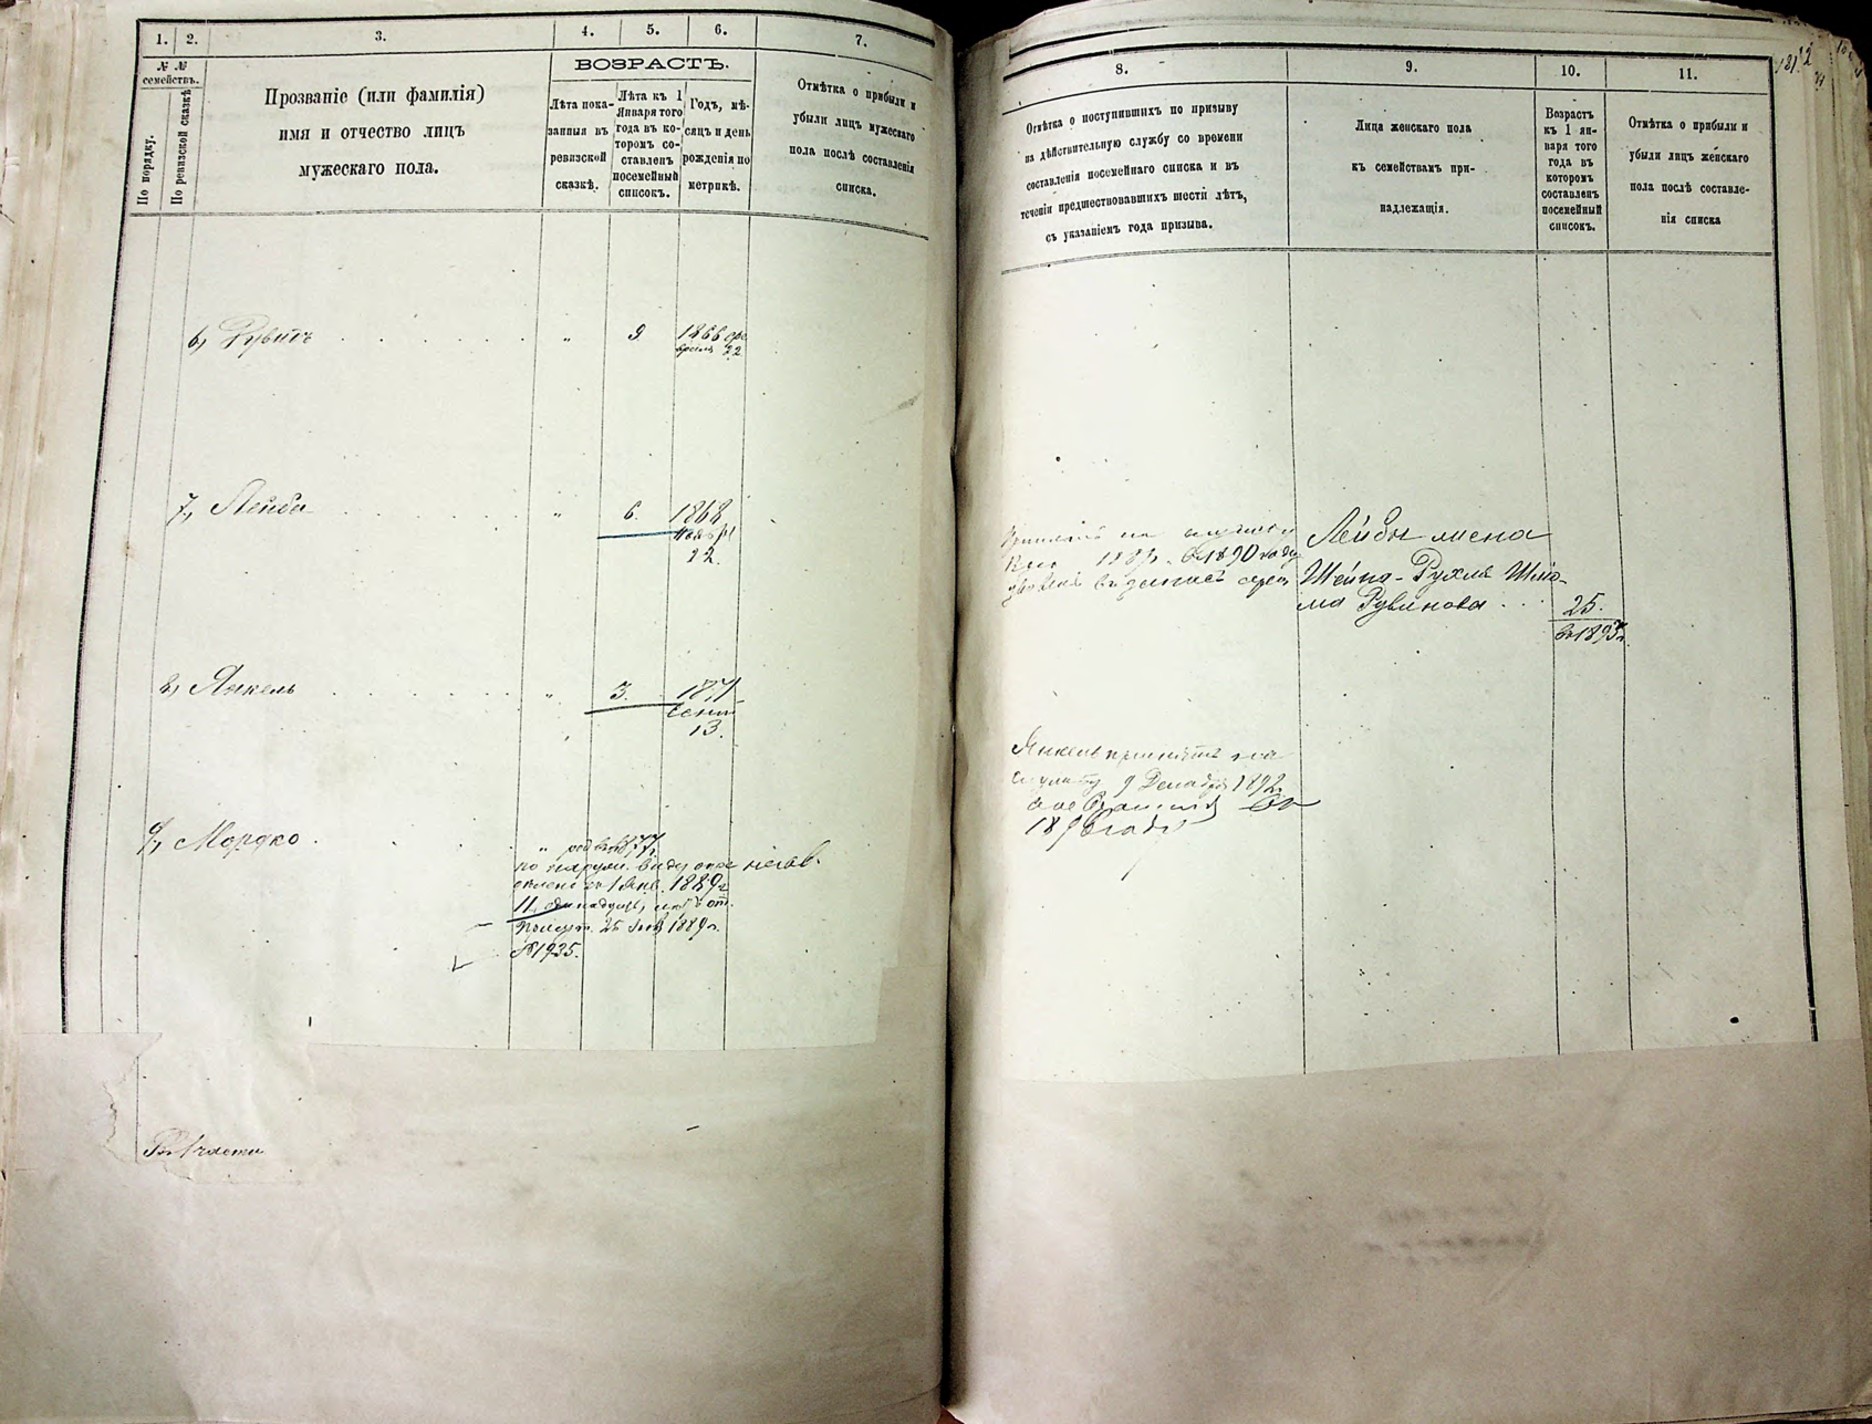 1. 2. 3. 4. 5. 6. 7.
№ №
семействъ.
По порядку.
По ревизской сказкѣ
Прозваніе (или фамилія)
имя и отчество лицъ
мужескаго пола.
ВОЗРАСТЪ.
Лѣта пока-
занныя въ
ревизской
сказкѣ.
Лѣта къ 1
Января того
года въ ко-
торомъ со-
ставленъ
посемейный
списокъ.
Годъ, мѣ-
сяцъ и день
рожденія по
метрикѣ.
Отмѣтка о прибыли и
убыли лицъ мужескаго
пола послѣ составленія
списка.
6, Рувинъ . . . . . . „ 9 1866 фе
враля 22
7, Лейба . . . . . . „ 6. 1868
Ноября
22.
8, Янкель . . . . . . „ 3. 1871
Сент
13.
9, Мордко . . „ род. въ 1877г.
по наружн. виду опре
въ 1 Янв. 1889г
11, одинадцать, лѣтъ от.
25 Янв 1889г.
№ 1935.
1 части
8. 9. 10. 11.
Отмѣтка о поступившихъ по призыву
на дѣйствительную службу со времени
составленія посемейнаго списка и въ
теченіи предшествовавшихъ шести лѣтъ,
съ указаніемъ года призыва.
Лица женскаго пола
къ семействамъ при-
надлежащія.
Возрастъ
къ 1 ян-
варя того
года въ
которомъ
составленъ
посемейный
списокъ.
Отмѣтка о прибыли и
убыли лицъ женскаго
пола послѣ составле-
нія списка
на
1889. въ 1890 году
Лейбы жена
Шейна-Рухля Шлiо-
ма Рувинова . . . 25.
въ 1895г.
Янкель принятъ на
службу 9 Декабря 1892г.